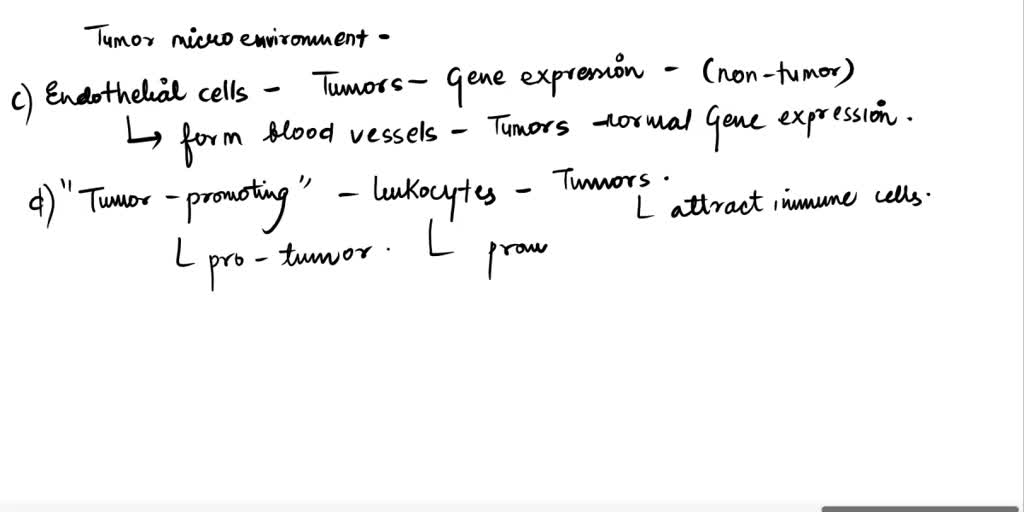 Tumor micro environment -
c) Endothelial cells - Tumors - Gene expression - (non-tumor)
↳ form blood vessels - Tumors normal Gene expression.
d) "Tumor - promoting" - leukocytes - Tumors.
L attract immune cells.
L pro - tumor. L prom